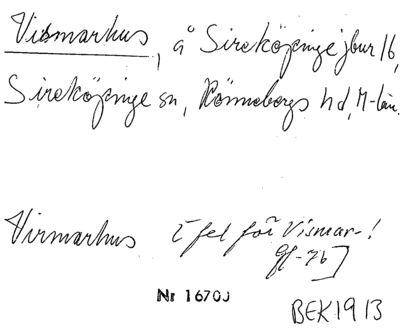 Vismarhus, å Sireköpinge jbur 16,
Sireköpinge sn, Rönnebergs hd, M-län.
Virmarhus [fel för Vismar-!
gf-76]
Nr 1670J
BEK 1913